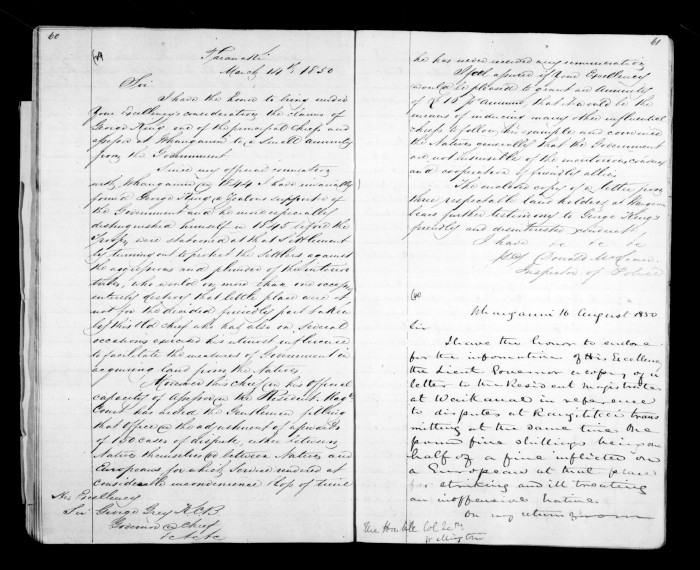 60
Taranaki
March 14th 1850
Sir
I have the honor to bring under
Your Excellency's consideration the claims of
George King, one of the principal Chiefs and
assessor at Whanganui to a small annuity
from the Government
Since my official connection
with Whanganui @ 1844 I have invariably
found George King a zealous supporter of
the Government and he more especially
distinguished himself in 1845 before the
Troops were stationed at that Settlement
by turning out to protect the Settlers against
the aggressions and plunder of the interior
tribes, who would on more than one occasion
entirely destroy that little place were it
not for the decided friendly part taken
by this Old Chief who has also on several
occasions exercised his utmost influence
to facilitate the measures of Government in
acquiring land from the Natives
Moreover this chief in his Official
capacity of Assessor in the Resident Magts
Court has aided the Gentlemen filling
that Office @ the adjustment of upwards
of 100 cases of dispute, either between
Natives themselves or between Natives and
Europeans for which service rendered at
considerable inconvenience & loss of time
His Excellency
Sir George Grey KCB
Governor @ Chief
&c &c &c
61
he has never received any remuneration
I feel assured if Your Excellency
would be pleased to grant an annuity
of £15 per annum, that it would be the
means of inducing many other influential
chiefs to follow his example and convince
the Natives generally that the Government
are not insensible of the meritorious services
and cooperation of friendly allies
The enclosed copy of a letter from
three respectable land holders at Wanganui
bears further testimony to George King's
friendly and disinterested conduct
I have &c &c &c
Donald McLean
Inspector of Police
Whanganui 16 August 1850
Sir
I have the honor to enclose
for the information of His Excellency
the Lieut Governor a copy of a
letter to the Resident Magistrate
at Waikanae in reference
to disputes at Rangitikei trans
mitting at the same time One
pound five shillings being one
half of a fine inflicted on
a European at that place
for striking and ill treating
an inoffensive native
On my return from
The Honble Col Secty
Wellington